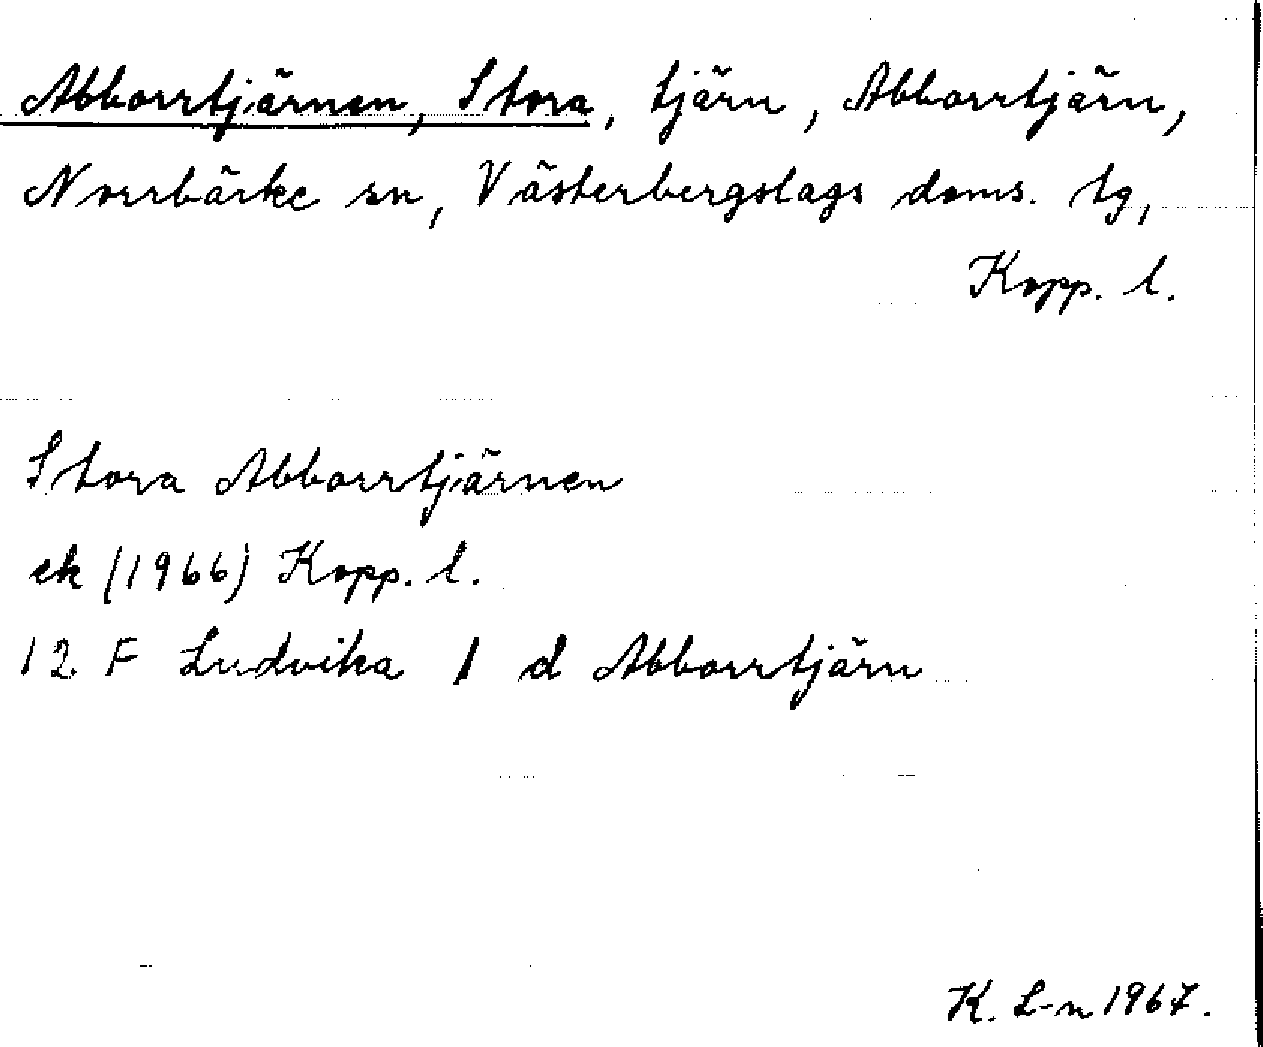 Abborrtjärnen, Stora, tjärn, Abborrtjärn,
Norrbärke sn, Västerbergslags doms. tg,
Kopp. l.
Stora Abborrtjärnen
ek (1966) Kopp. l.
12 F Ludvika 1 d Abborrtjärn
K. L-n 1967.